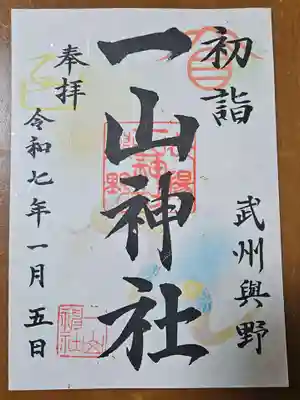 初詣
武州與野
一山神社
奉拝
令和七年一月五日